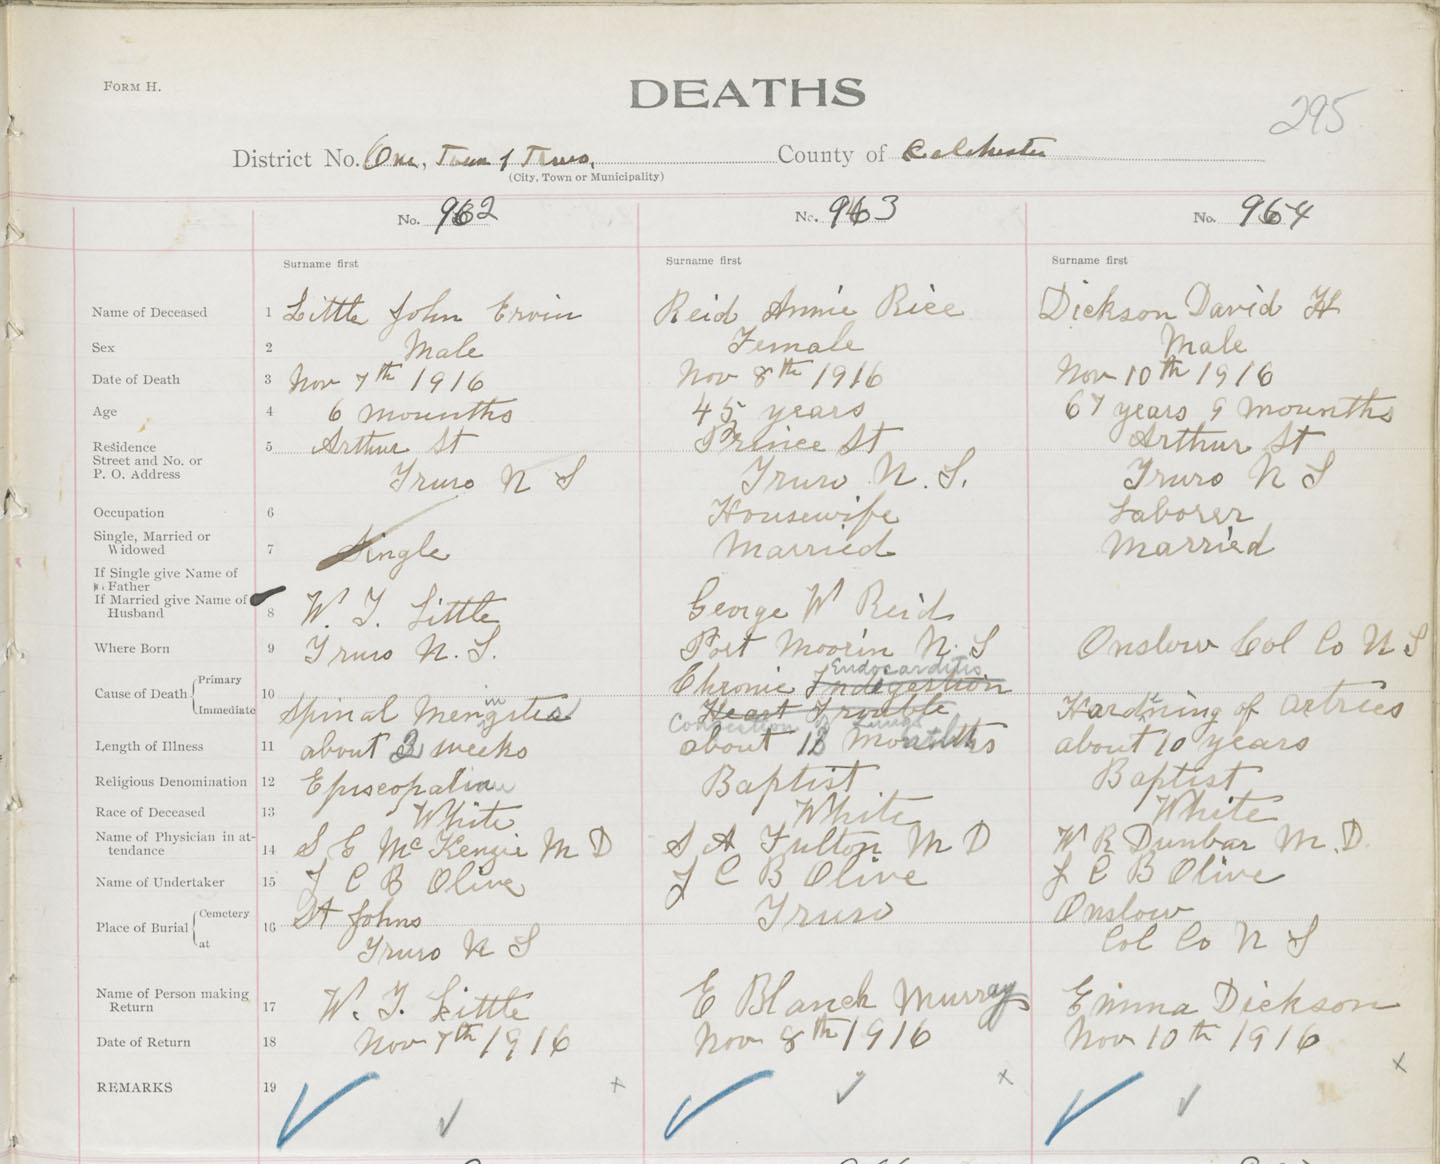 FORM H.
DEATHS
295
District No. One, Town of Truro, County of Colchester
(City, Town or Municipality)
No. 962 No. 963 No. 964
Surname first Surname first Surname first
Name of Deceased 1 Little John Ervin Reid Annie Rice Dickson David H
Sex 2 Male Female Male
Date of Death 3 Nov 7th 1916 Nov 8th 1916 Nov 10th 1916
Age 4 6 mounths 45 years 67 years 9 mounths
Residence 5 Arthur St Prince St Arthur St
Street and No. or
P. O. Address Truro N S Truro N. S. Truro N S
Occupation 6 Housewife Laborer
Single, Married or
Widowed 7 Single Married Married
If Single give Name of
Father
If Married give Name of
Husband 8 W. T. Little George W Reid
Where Born 9 Truro N. S. Port Moorin N. S Onslow Col Co N S
Cause of Death Primary 10 Chronic Indigestion Endocarditis
Immediate Spinal Mengites in Heart Trouble Hardning of artries
Congestion of Lungs
Length of Illness 11 about 3 weeks about 18 months about 10 years
Religious Denomination 12 Episcopalian Baptist Baptist
Race of Deceased 13 White White White
Name of Physician in at-
tendance 14 S E McKenzie M D S A Fulton M D W R Dunbar M. D.
Name of Undertaker 15 J C B Olive J C B Olive J C B Olive
Place of Burial Cemetery 16 St Johns Truro Onslow
at Truro N S Col Co N S
Name of Person making
Return 17 W. T. Little E Blanch Murray Emma Dickson
Date of Return 18 Nov 7th 1916 Nov 8th 1916 Nov 10th 1916
REMARKS 19